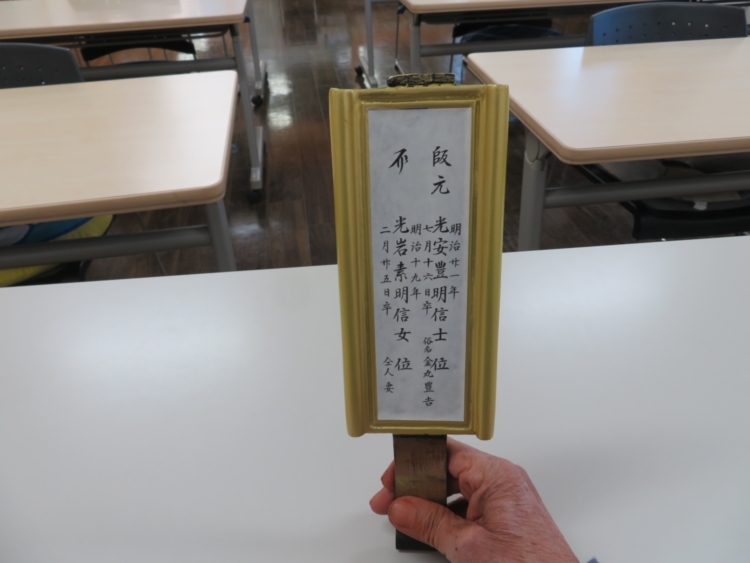 明治廿一年
皈元 光安豊明信士位
七月十六日卒 俗名金丸豊吉
明治十九年
光岩素明信女位
二月廿五日卒 仝人妻